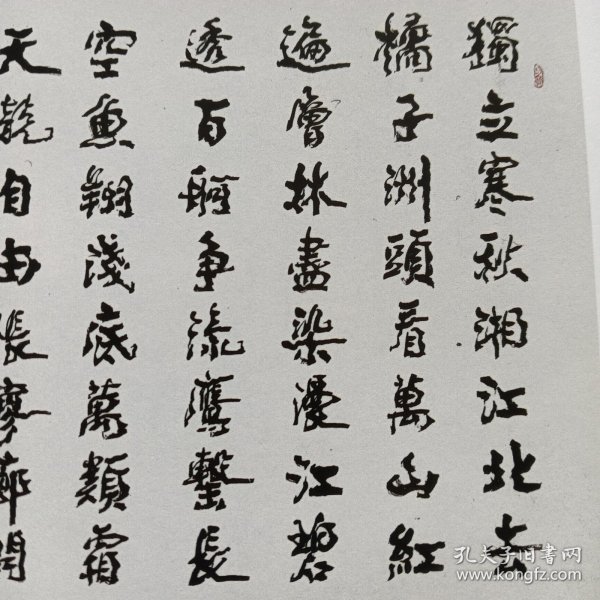 獨立寒秋湘江北去
橘子洲頭看萬山紅
遍層林盡染漫江碧
透百舸争流鷹擊長
空魚翔淺底萬類霜
天競自由悵寥廓問
孔夫子旧书网
www.kongfz.com